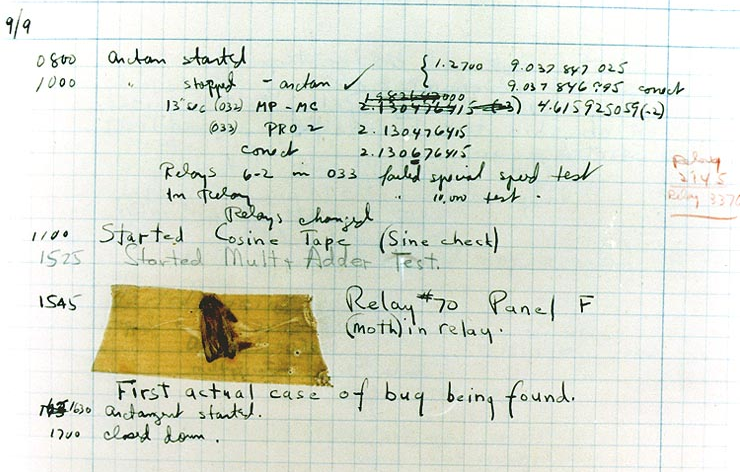 9/9
0800 arctan started { 1.2700 9.037 847 025
1000 " stopped - arctan ✓ 9.037 846 995 correct
13"sec (032) MP - MC 1.982647000 2.130476415 (-3) 4.615925059(-2)
(033) PRO 2 2.130476415
correct 2.130676415
Relays 6-2 in 033 failed special speed test
In Relay " 10,000 test .
Relays changed
Relay
2145
Relay 3370
1100 Started Cosine Tape (Sine check)
1525 Started Mult + Adder Test.
1545 Relay #70 Panel F
(moth) in relay.
First actual case of bug being found.
1630 arctangent started.
1700 closed down .